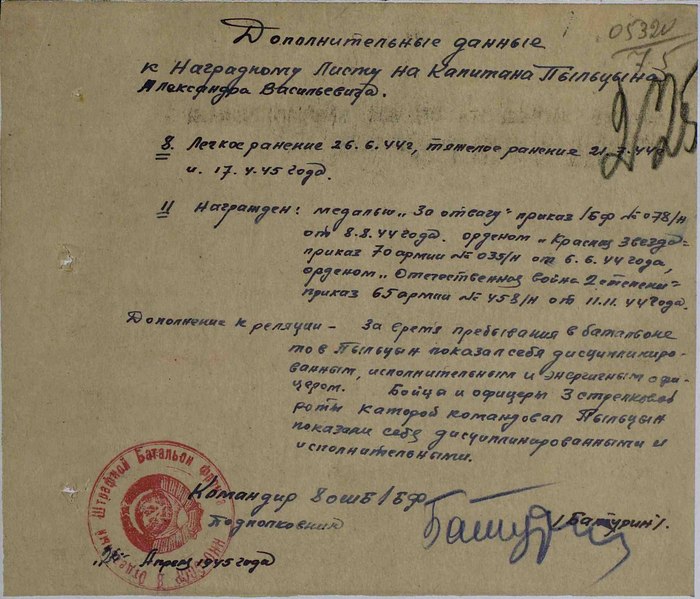 Дополнительные данные
0532
75
к Наградному Листу на Капитана Пыльцына
Александра Васильевича.
8. Легкое ранение 26.6.44г, тяжелое ранение 21.7.44г
и 17.4.45 года.
11 Награжден: медалью „За отвагу" приказ 1БФ № 078/н
от 8.8.44 года. орденом „Красная Звезда"
приказ 70 армии № 035/н от 6.6.44 года,
орденом „Отечественная война 2 степени"
приказ 65 армии № 458/н от 11.11.44 года.
Дополнение к реляции – За время пребывания в батальоне
т-в Пыльцын показал себя дисциплиниро-
ванным, исполнительным и энергичным офи-
цером. Бойца и офицеры 3 стрелковой
роты каторой командовал Пыльцын
показали себя дисциплинированными и
исполнительными.
Командир 8 ОШБ 1БФ
Подполковник Батурин /Батурин/.
Апреля 1945 года
8 Отдельный Штрафной Батальон Фронта
НКО СССР